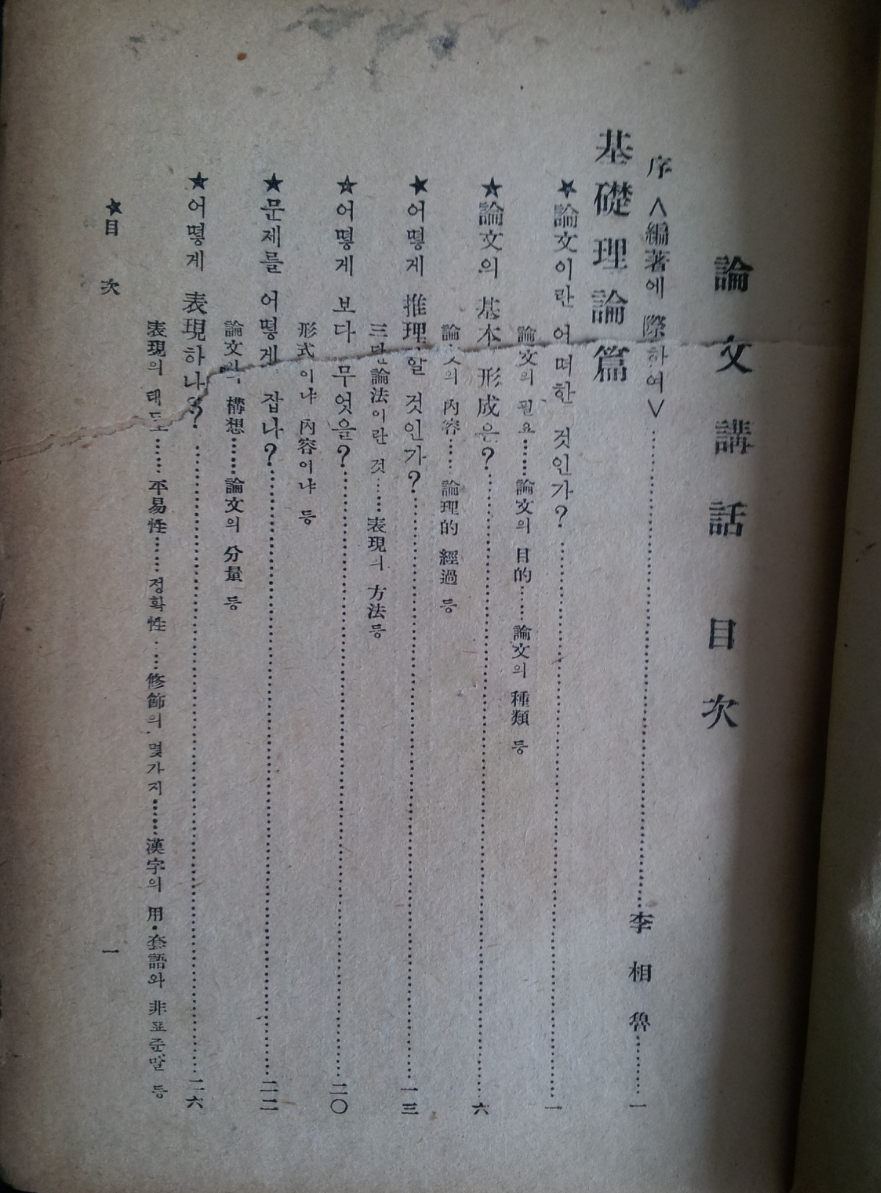 論文講話目次
序 <編著에 際하여>……李相魯……一
基礎理論篇
★論文이란 어떠한 것인가?……一
論文의 필요……論文의 目的……論文의 種類 등
★論文의 基本 形成은?……六
論文의 內容……論理的 經過 등
★어떻게 推理할 것인가?……一三
三단論法이란 것……表現의 方法등
★어떻게 보다 무엇을?……二〇
形式이냐 內容이냐 등
★문제를 어떻게 잡나?……二二
論文의 構想……論文의 分量 등
★어떻게 表現하나?……二六
表現의 태도……平易性……정확性……修飾의 몇가지……漢字의 用·套語와 非표준말 등
★目次
一